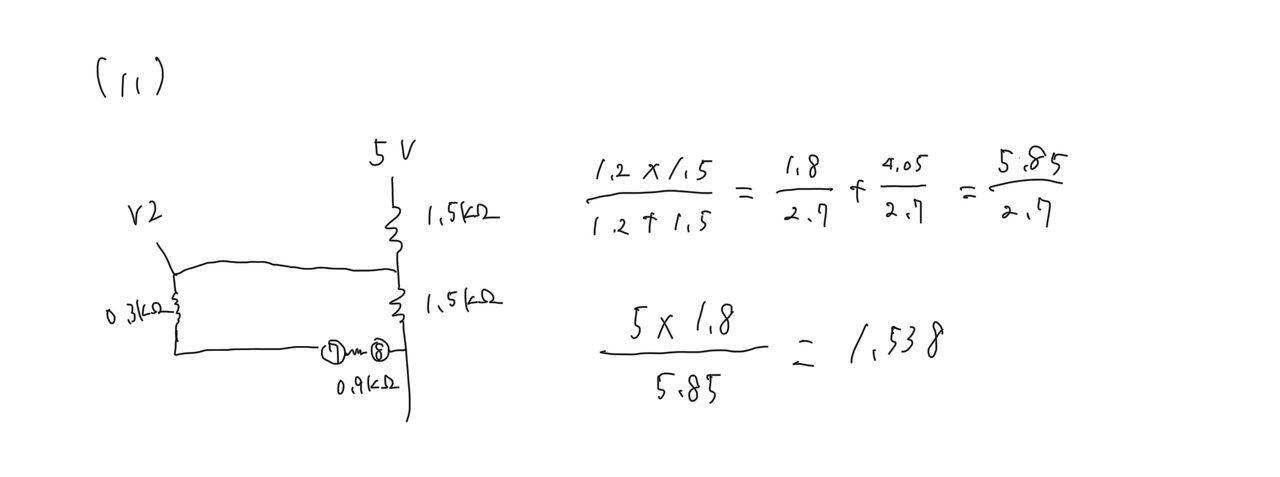 (11)
5V
V2
1.5kΩ
0.3kΩ
1.5kΩ
⑦ ⑧
0.9kΩ
1.2 × 1.5 / 1.2 + 1.5 = 1.8 / 2.7 + 4.05 / 2.7 = 5.85 / 2.7
5 × 1.8 / 5.85 = 1.538